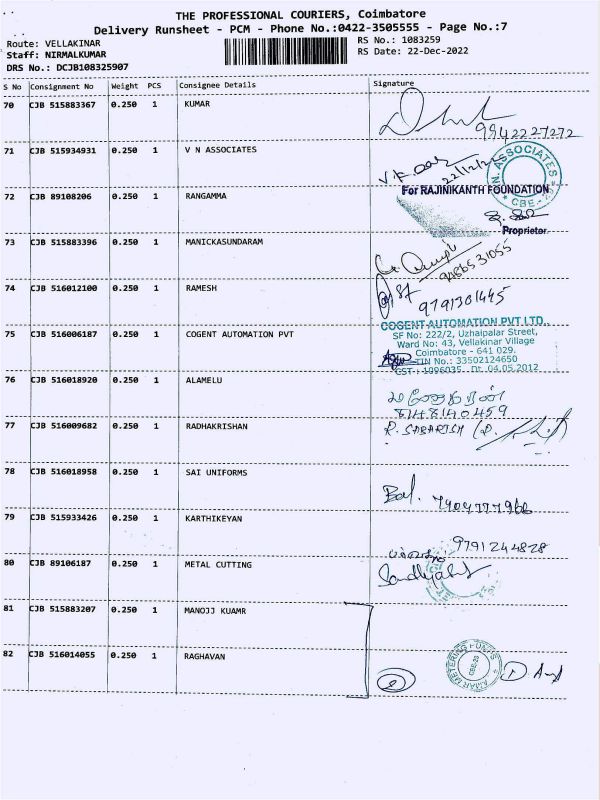 THE PROFESSIONAL COURIERS, Coimbatore
Delivery Runsheet - PCM - Phone No.:0422-3505555 - Page No.:7
Route: VELLAKINAR
RS No.: 1083259
Staff: NIRMALKUMAR
RS Date: 22-Dec-2022
DRS No.: DCJB108325907
S No Consignment No Weight PCS Consignee Details Signature
70 CJB 515883367 0.250 1 KUMAR
9942227272
71 CJB 515934931 0.250 1 V N ASSOCIATES
22/12/22
N. ASSOCIATES
* CBE - 29 *
72 CJB 89108206 0.250 1 RANGAMMA
For RAJINIKANTH FOUNDATION
Proprietor
73 CJB 515883396 0.250 1 MANICKASUNDARAM
9486531055
74 CJB 516012100 0.250 1 RAMESH
9791301445
75 CJB 516006187 0.250 1 COGENT AUTOMATION PVT
COGENT AUTOMATION PVT LTD.,
SF No: 222/2, Uzhaipalar Street,
Ward No: 43, Vellakinar Village
Coimbatore - 641 029.
TIN No.: 33502124650
CST : 1096035 Dt. 04.05.2012
76 CJB 516018920 0.250 1 ALAMELU
8148140459
77 CJB 516009682 0.250 1 RADHAKRISHAN
R. SABARISH
78 CJB 516018958 0.250 1 SAI UNIFORMS
Bal.
79 CJB 515933426 0.250 1 KARTHIKEYAN
9791244828
80 CJB 89106187 0.250 1 METAL CUTTING
81 CJB 515883207 0.250 1 MANOJJ KUAMR
82 CJB 516014055 0.250 1 RAGHAVAN